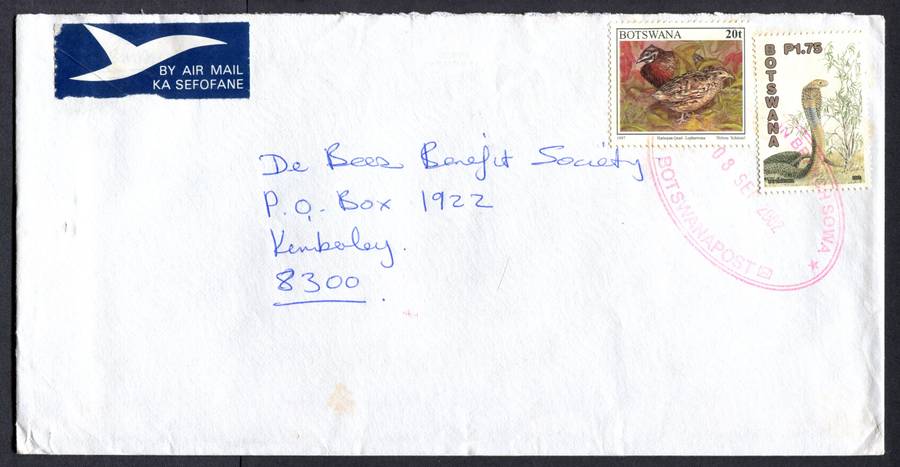 BY AIR MAIL
KA SEFOFANE
BOTSWANA 20t
1997 Harlequin Quail
P1.75
BOTSWANA
De Beers Benefit Society
P.O. Box 1922
Kimberley.
8300.
08 SEP 2002
BOTSWANAPOST
SOWA